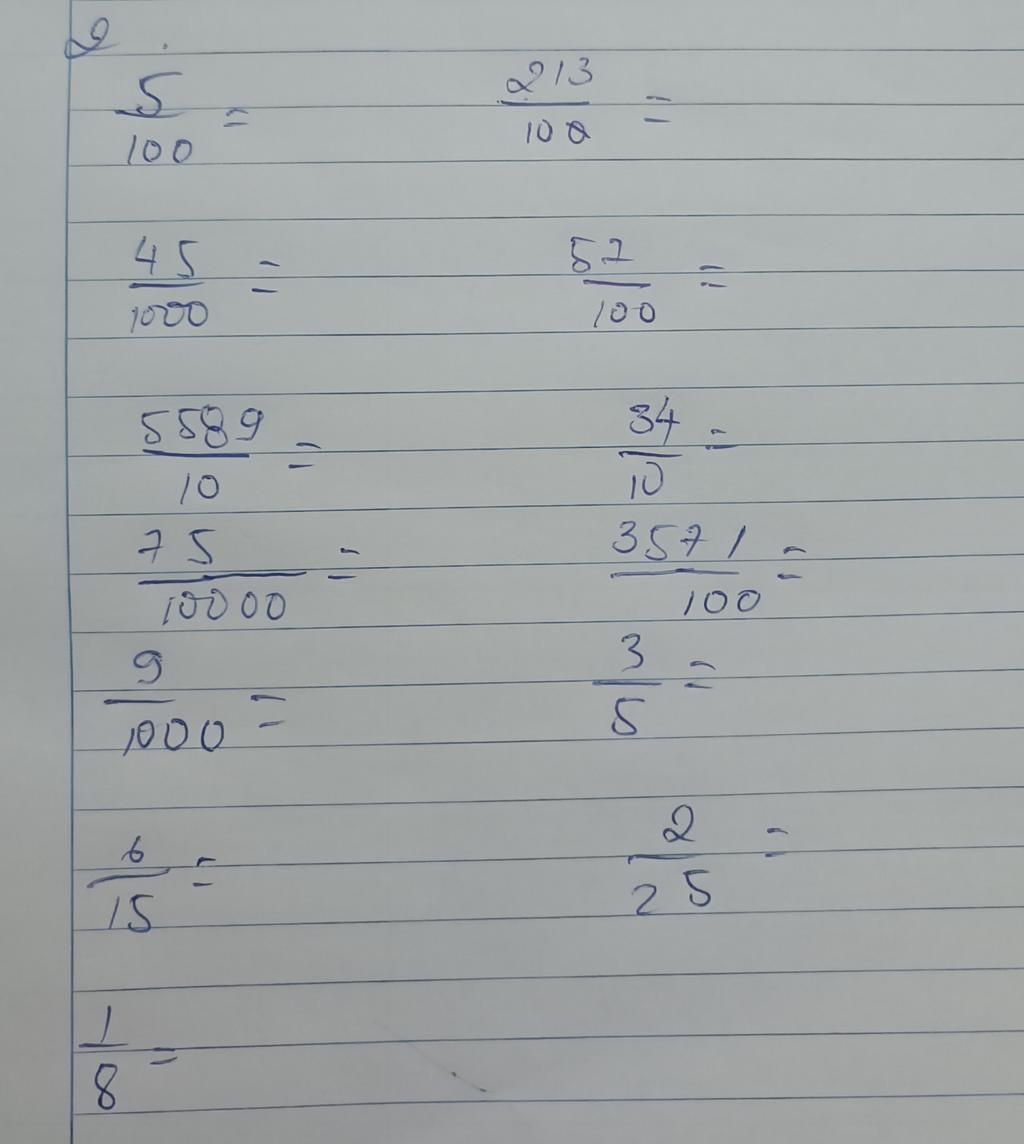 2.
5/100 = 213/100 =
45/1000 = 57/100 =
5589/10 = 34/10 =
75/10000 = 3571/100 =
9/1000 = 3/5 =
6/15 = 2/25 =
1/8 =